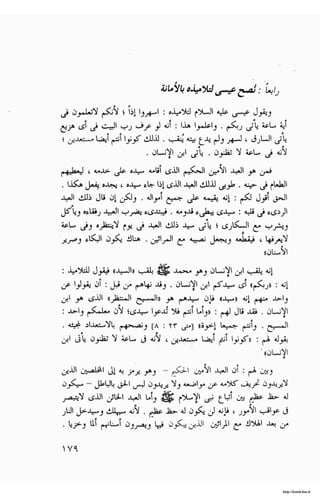 رابعا : نصح عيسى لتلاميذه بالأمانة
ويقول عيسى عليه السلام لتلاميذه : اسهروا إذا ؛ لأنكم لا تعلمون في
أية ساعة يأتي ربكم . واعلموا هذا : أنه لو عرف رب البيت في أي هزيع
يأتي السارق ، لسهر ، ولم يدع بيته يُنقب . لذلك كونوا أنتم أيضاً مستعدين ؛
لأنه في ساعة لا تظنون . يأتي ابن الإنسان .
فمن هو العبد الأمين الحكيم الذي أقامه سيده على خدمه ، ليعطيهم
الطعام في حينه . طوبى لذلك العبد الذي إذا جاء سيده ، يجده يفعل هكذا .
الحق أقول لكم : إنه يقيمه على جميع أمواله . ولكن إن قال ذلك العبد
الردى في قلبه : سيدي يبطىء قدومه . فيبتدىء يضرب العبيد رفقاءه ويأكل
ويشرب مع السكارى ، يأتي سيد ذلك العبد في يوم لا ينتظره وفي ساعة
لا يعرفها ، فيقطعه ويجعل نصيبه مع المرائين . هناك يكون البكاء وصرير
الأسنان»
إنه يلقب ابن الإنسان وهو محمد ﷺ بلقب «السيد» فيقول لتلاميذه :
إنه «ربكم» أي سيدكم . ابن الإنسان . وقد نهاهم من قبل : أن يقولوا عن
واحد منهم إنه «سيد» فإن سيدهم هو «المسيح المنتظر» الذي هو ابن
الإنسان . فقد قال لهم : «وأما أنتم فلا تدعوا سيدى ؛ لأن معلمكم واحد :
المسيح . وأنتم جميعا إخوة» [متى ٢٣ : ٨] وينصحهم بالاستعداد لمجيئه .
بقوله لهم : «كونوا أنتم أيضا مستعدين ، لأنه في ساعة لا تظنون يأتي ابن
الإنسان»
وبين لهم : أن العبد الأمين الحكيم – وهو يرمز به إلى المخلصين الذين
لا يريدون تحريف كلامه عن مواضعه ولا يريدون لبس الحق بالباطل – يكون
له حظ عظيم بين أتباع نبي الإسلام ﷺ وأما العبد الخائن الذي يتصرف
في عواقب الأمور ، فإنه لن يكون له حظ عظيم . لأنه سيهلك وسيدخل النار
من بعد الهلاك مع المرائين الذين يكون فيها ويصرون أسنانهم ألما وحزنا .
١٧٩
http://kotob.has.it